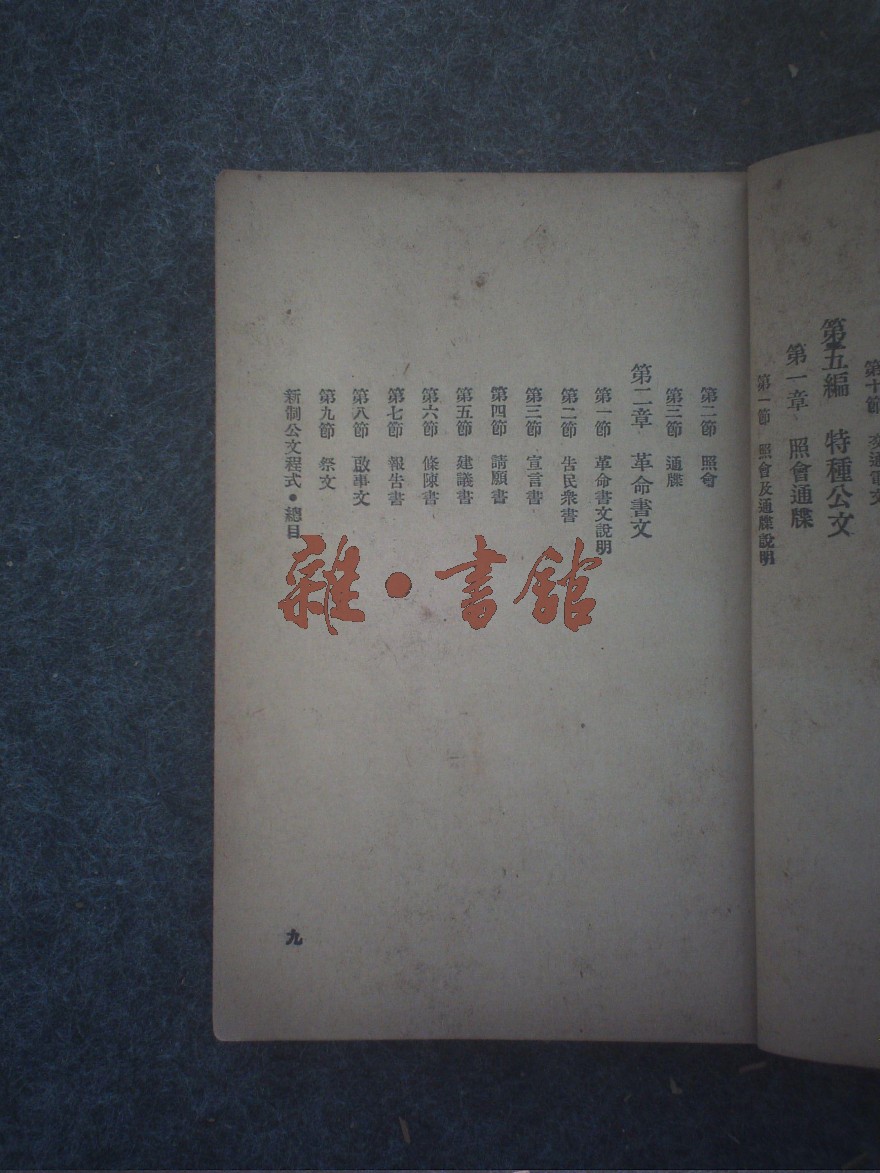 第十節　交通電文
第五編　特種公文
第一章　照會通牒
第一節　照會及通牒說明
第二節　照會
第三節　通牒
第二章　革命書文
第一節　革命書文說明
第二節　告民衆書
第三節　宣言書
第四節　請願書
第五節　建議書
第六節　條陳書
第七節　報告書
第八節　啟事文
第九節　祭文
新制公文程式•總目
九
雜•書館